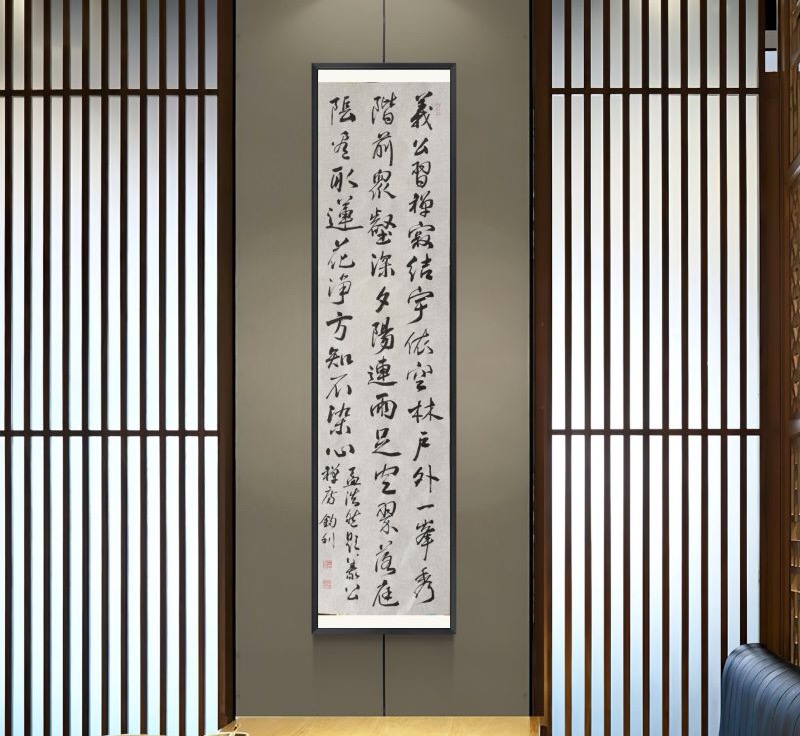 義公習禪寂結宇依空林户外一峯秀
階前眾壑深夕陽連雨足空翠落庭
陰看取蓮花淨方知不染心
孟浩然題義公
禪房